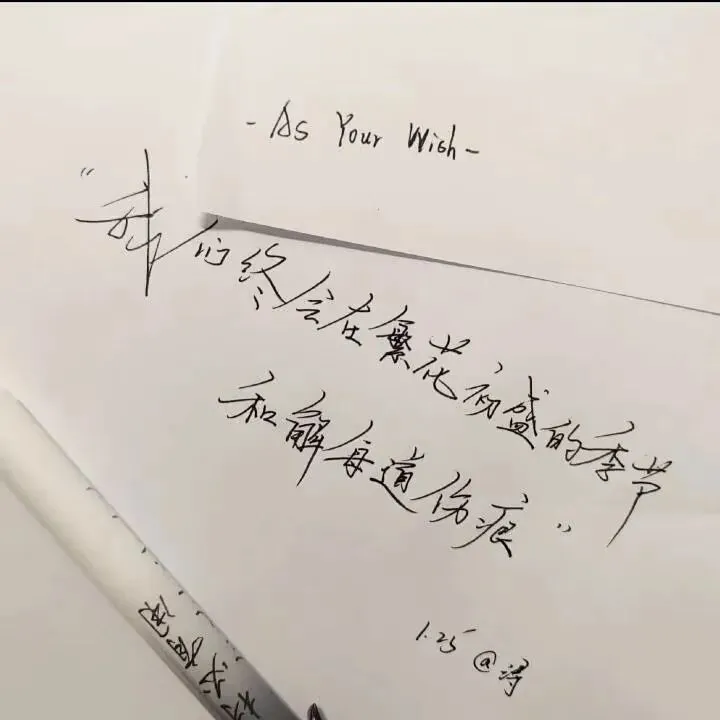 - As Your Wish -
“我们终会在繁花初盛的季节
和解每道伤痕”
1.25 @